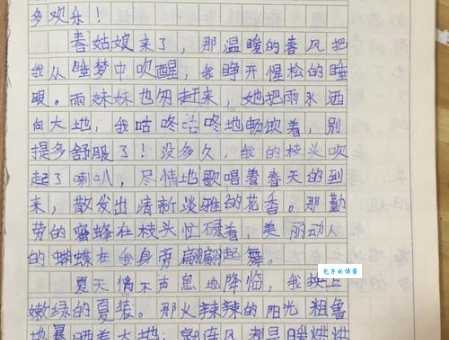 多欢乐！
春姑娘来了，那温暖的春风把
我从睡梦中吹醒，我睁开惺松的睡
眼。雨妹妹也匆赶来，她把雨水洒
向大地，我咕咚咕咚地畅饮着，别
提多舒服了！没多久，我的枝头吹
起了喇叭，尽情地歌唱着春天的到
来，散发出清新淡雅的花香。那勤
劳的蜜蜂在枝头忙碌着，美丽动人
的蝴蝶在我身旁翩翩起舞。
夏天悄不声息地降临，我换上
嫩绿的夏装。那火辣辣的阳光粗鲁
地暴晒着大地，就连风都是暖烘烘